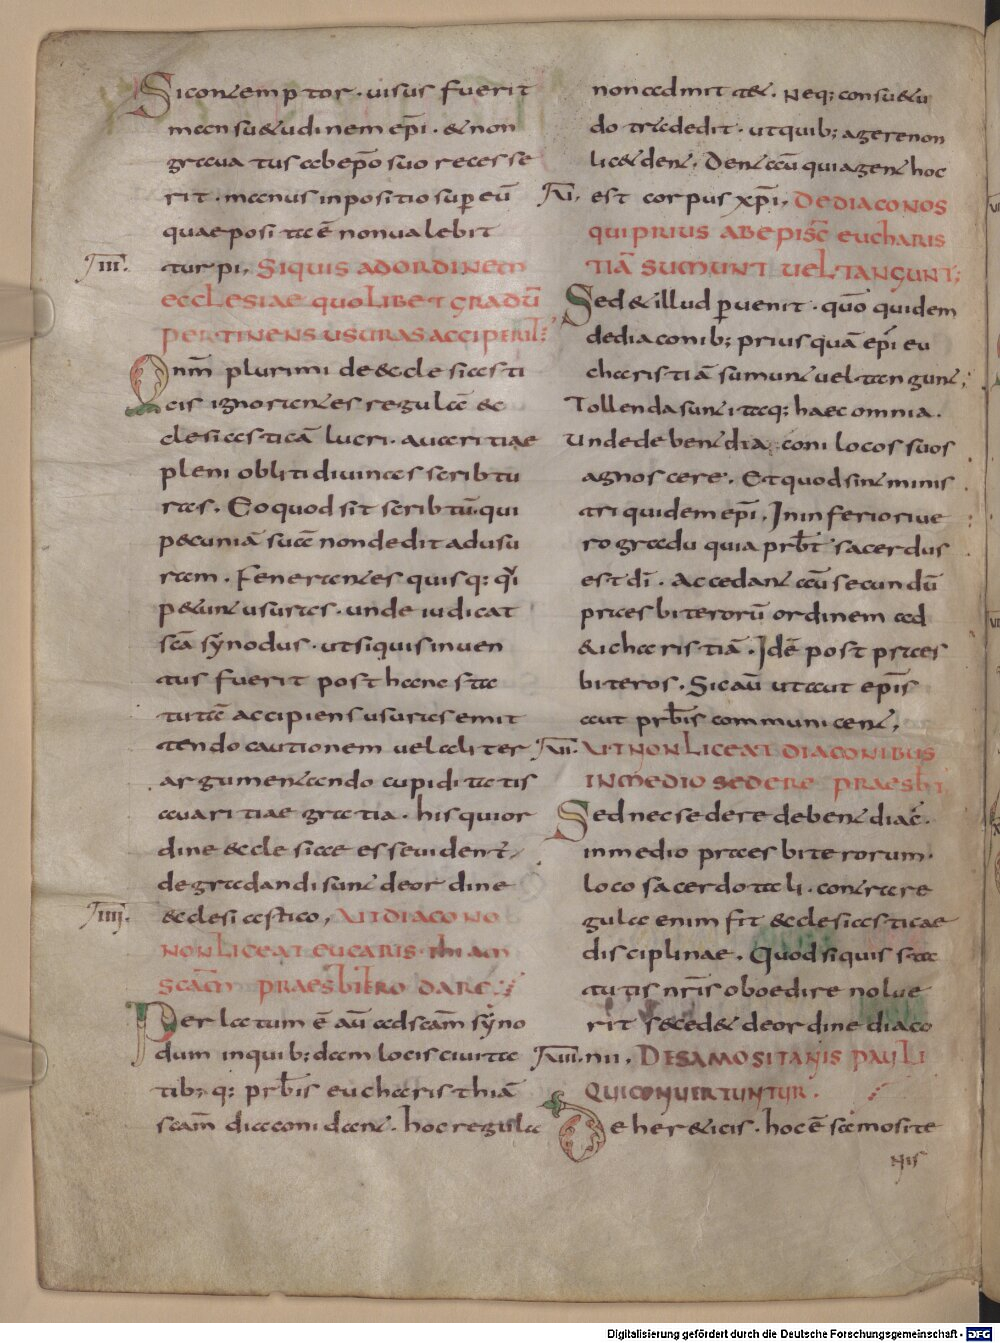 Si contemptor · uisus fuerit
in consuetudinem ep̄i · & non
grauatus ab ep̄o suo recesse
rit · manus inpositio sup eū
quae posita ē non ualebit
III. turpi, SIQUIS AD ORDINEM
ECCLESIAE QUOLIBET GRADŪ
PERTINENS USURAS ACCIPERIT:
Qnm̄ plurimi de ecclesiasti
cis ignorantes regulā ec
clesiasticā lucri · auaritiae
pleni obliti diuinas scribtu
ras · Eo quod sit scribtū · qui
pecuniā suā non dedit ad usu
ram · Fenerantes quisq; qi
petunt usuras · unde iudicat
scā synodus · ut si quis inuen
tus fuerit post hanc sta
tutā accipiens usuras emit
tendo cautionem uel aliter
argumentando cupiditatis
auaritiae gratia · his qui or
dine ecclesiae esse uident,
degradandi sunt de ordine
IIII. ecclesiastico, UT DIACONO
NON LICEAT EUCARISTHIAM
SCAM̄ PRAESBITERO DARE:
Perlatum ē aū ad scam̄ syno
dum in quib; dam locis ciuita
tib; q; prb̄is eucharisthiā
scam̄ diaconi dant · hoc regula
non admittet · Neq; consuetu
do tradedit · ut quib; agere non
licet dent · Dent eam qui agent hoc
VI. est corpus xp̄i, DE DIACONOS
QUI PRIUS AB EPISC̄ EUCHARIS
TIĀ SUMUNT UEL TANGUNT;
Sed & illud puenit · quō quidem
de diaconib; prius quā ep̄i eu
charistiā sumunt uel tangunt;
Tollenda sunt itaq; haec omnia.
Unde debent diaconi locos suos
agnoscere. Et quod sint minis
tri quidem ep̄i. In inferiori ue
ro gradu quia prb̄t sacerdus
est dī. Accedant eam secundū
praesbiterorū ordinem ad
euicharistiā. Idē post praes
biteros. Sic aū ut aut ep̄is
aut prb̄is communicent,
VII. UT NON LICEAT DIACONIBUS
IN MEDIO SEDERE PRAESBI
Sed nec sedere debent diac̄ ·
in medio praesbiterorum ·
loco sacerdotali · contra re
gula enim fit ecclesiasticae
disciplinae. Quod si quis sta
tutis nr̄is oboedire nolue
rit secedet de ordine diaco
VIII. nii. DE SAMOSITANIS PAULI
QUI CONUERTUNTUR.
De hereticis · hoc ē samosita
nis
Digitalisierung gefördert durch die Deutsche Forschungsgemeinschaft - DFG